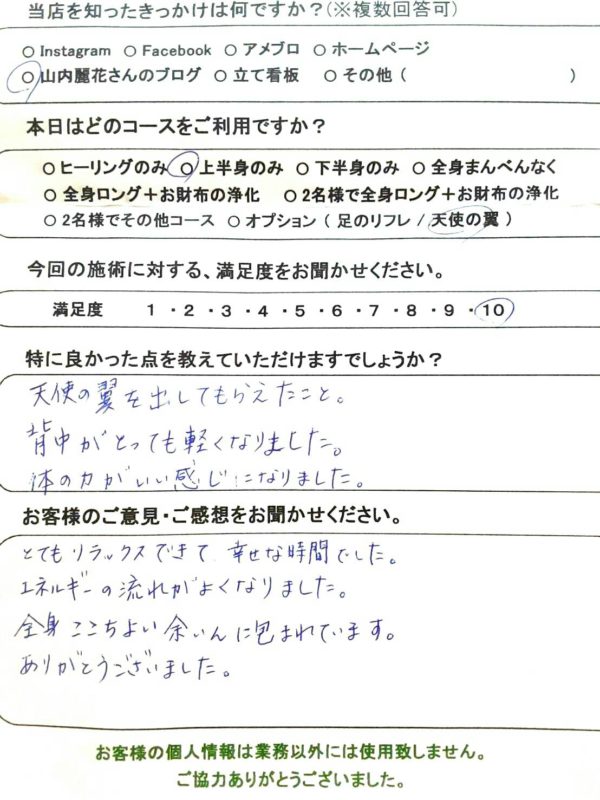 当店を知ったきっかけは何ですか？(※複数回答可)
○ Instagram ○ Facebook ○ アメブロ ○ ホームページ
○ 山内麗花さんのブログ ○ 立て看板 ○ その他 ( )
本日はどのコースをご利用ですか？
○ ヒーリングのみ ○ 上半身のみ ○ 下半身のみ ○ 全身まんべんなく
○ 全身ロング＋お財布の浄化 ○ 2名様で全身ロング＋お財布の浄化
○ 2名様でその他コース ○ オプション ( 足のリフレ / 天使の翼 )
今回の施術に対する、満足度をお聞かせください。
満足度 1 ・2 ・3 ・4 ・5 ・6 ・7 ・8 ・9 ・10
特に良かった点を教えていただけますでしょうか？
天使の翼を出してもらえたこと。
背中がとっても軽くなりました。
体の力がいい感じになりました。
お客様のご意見・ご感想をお聞かせください。
とてもリラックスできて、幸せな時間でした。
エネルギーの流れがよくなりました。
全身ここちよい余いんに包まれています。
ありがとうございました。
お客様の個人情報は業務以外には使用致しません。
ご協力ありがとうございました。